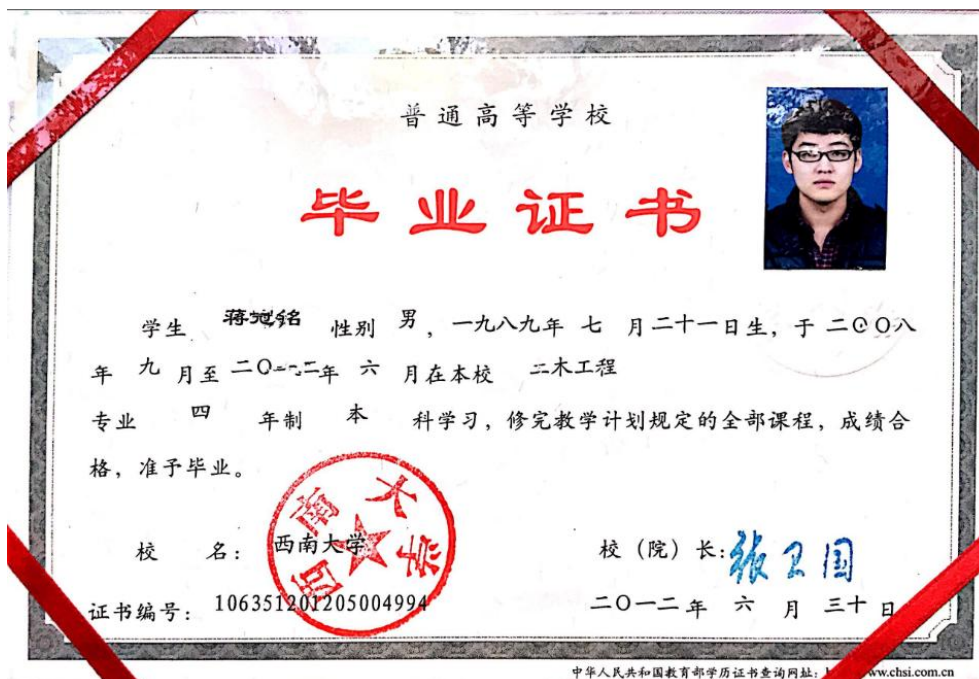 普通高等学校
毕业证书
学生 蒋 铭 性别 男，一九八九年 七 月二十一日生，于 二〇〇八
年 九 月至 二〇一二年 六 月在本校 土木工程
专业 四 年制 本 科学习，修完教学计划规定的全部课程，成绩合
格，准予毕业。
西南大学
校 名： 西南大学
校（院）长：张卫国
证书编号： 106351201205004994
二〇一二年 六 月 三十 日
中华人民共和国教育部学历证书查询网址： ww.chsi.com.cn